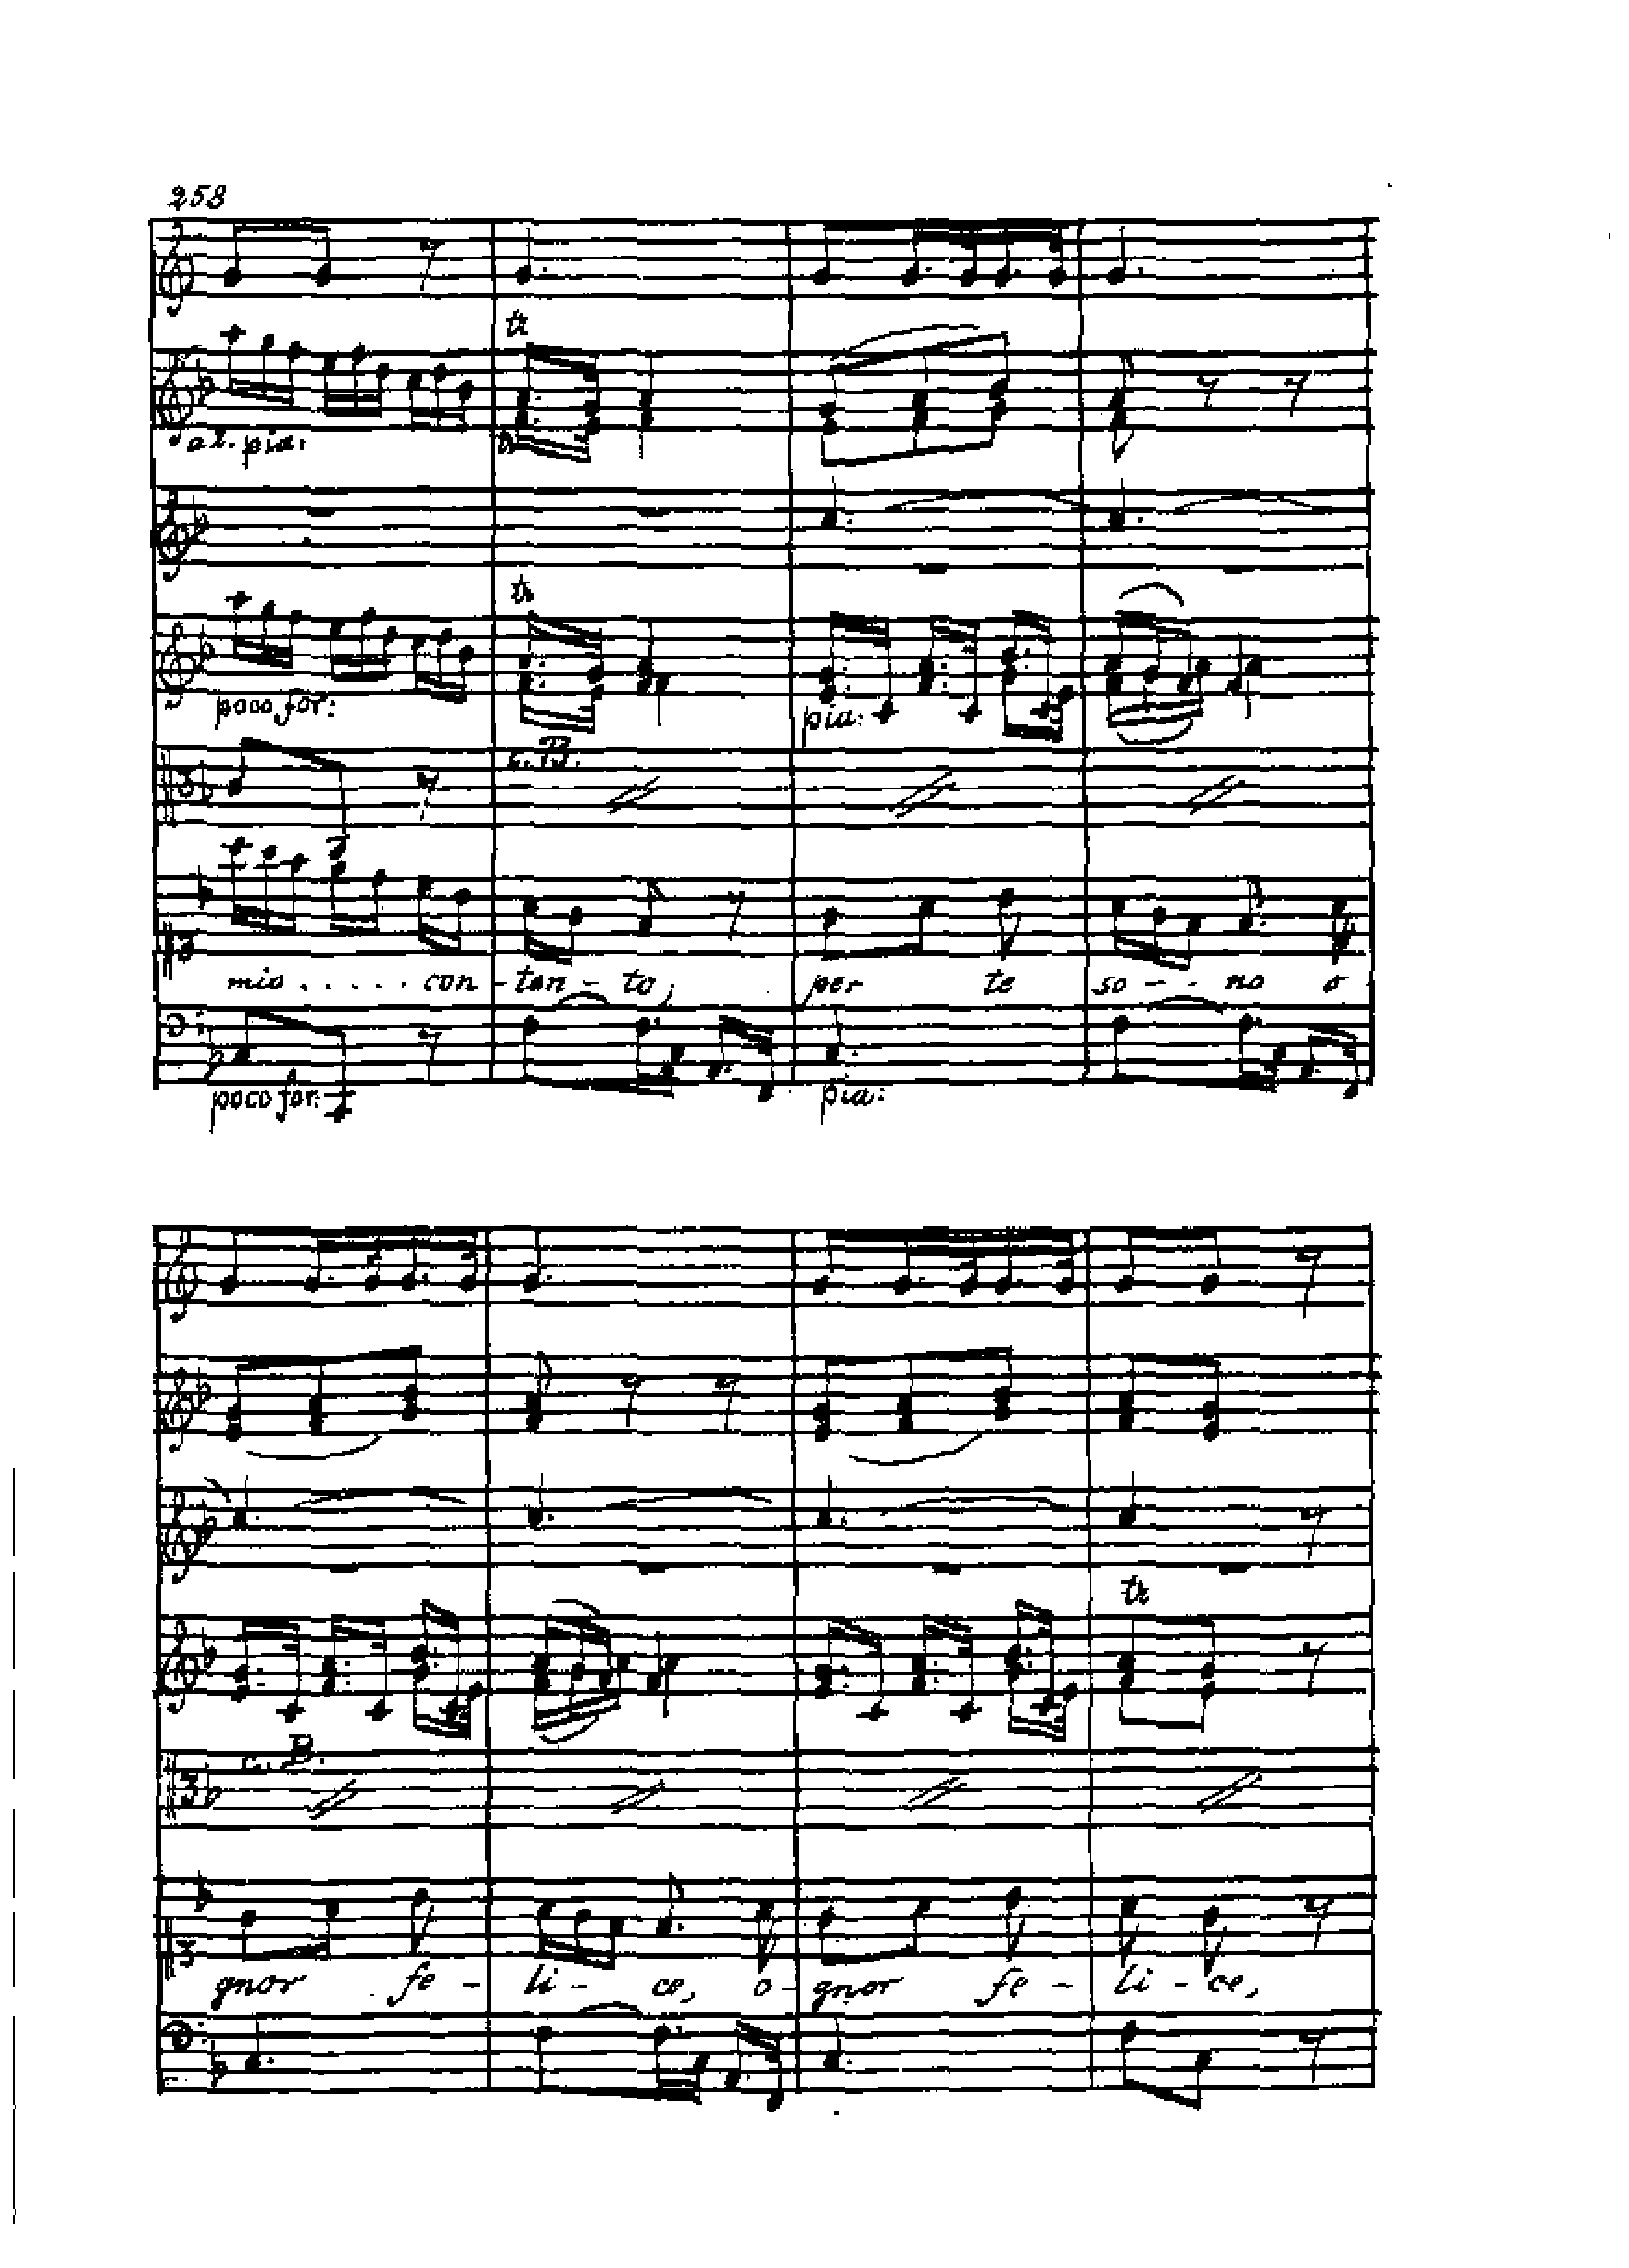 258
tr
a2. pia:
tr
tr
poco for:
pia:
c. B.
mio . . . . . con - ten - to, per te so - - no o
poco for:
pia:
tr
c. B.
gnor fe - li - ce, o - gnor fe - li - ce,